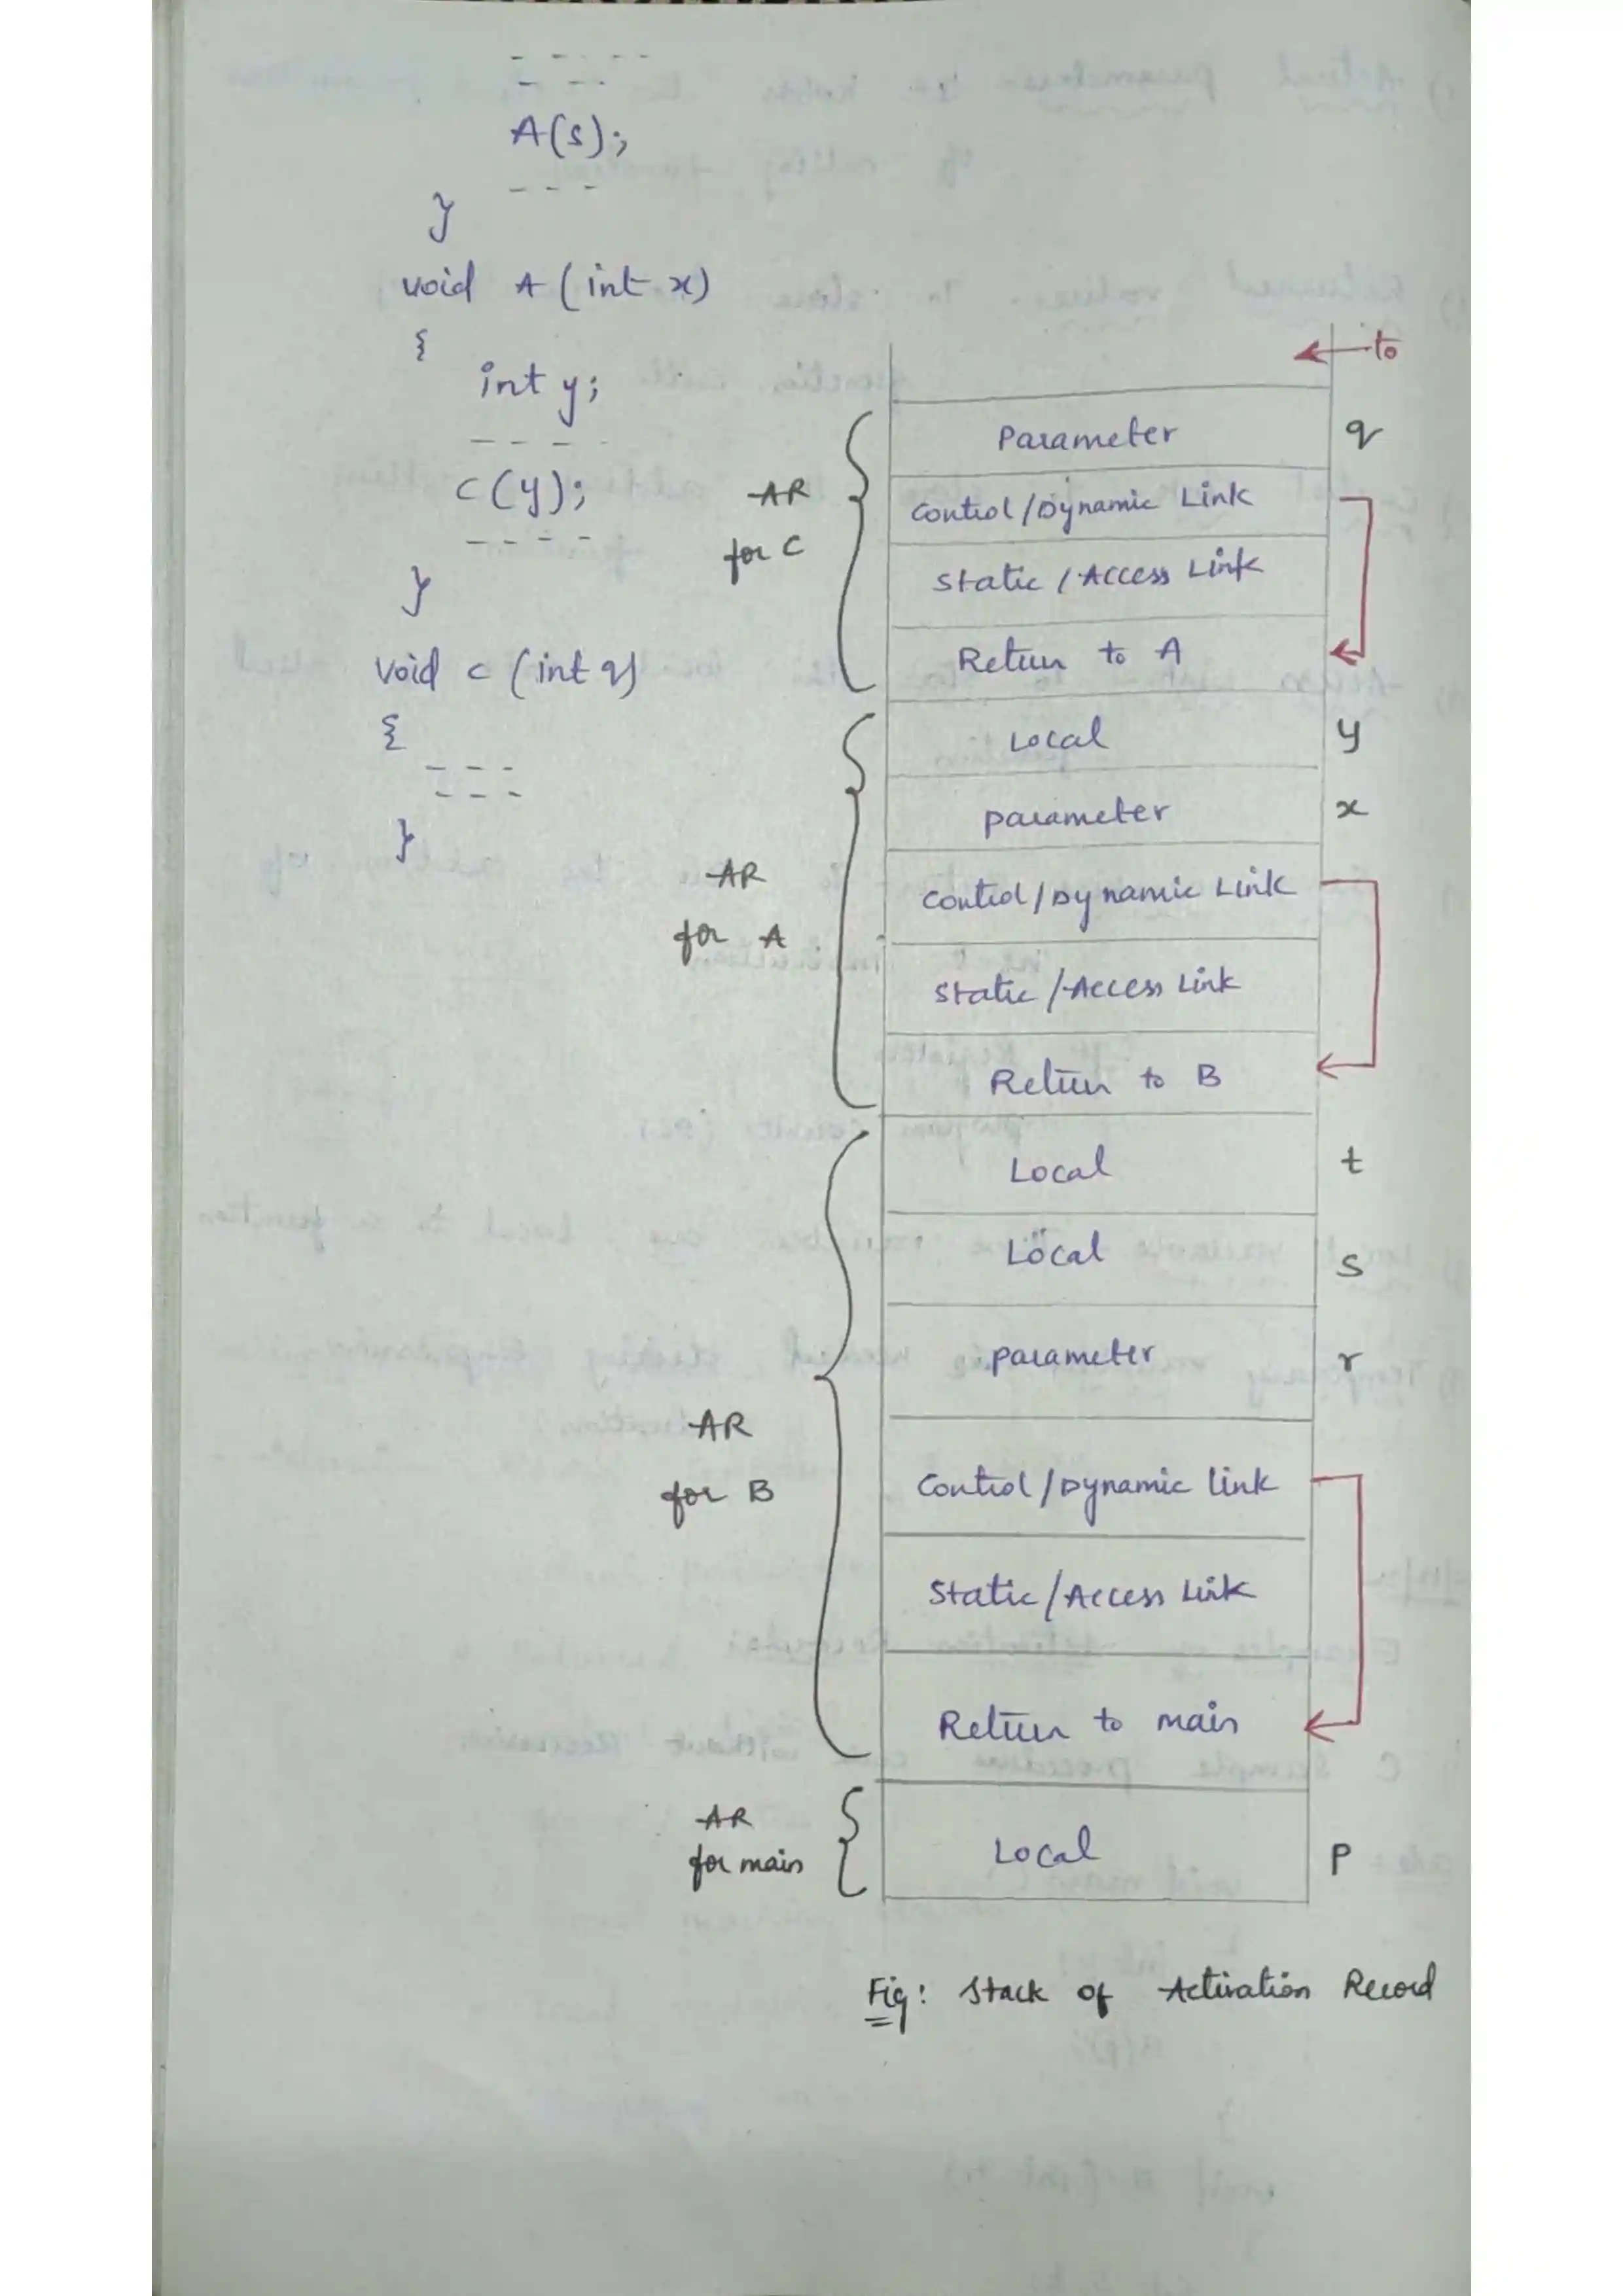 - - - - -
- - - -
A(s);
- - -
}
void A (int x)
{
int y;
- - - -
c(y);
- - - -
}
void c (int q)
{
- - -
- - -
}
← to
Parameter q
AR for C
Control/Dynamic Link
Static/Access Link
Return to A
Local y
parameter x
AR for A
Control/Dynamic Link
Static/Access Link
Return to B
Local t
Local s
parameter r
AR for B
Control/Dynamic link
Static/Access Link
Return to main
AR for main
Local p
Fig: Stack of Activation Record